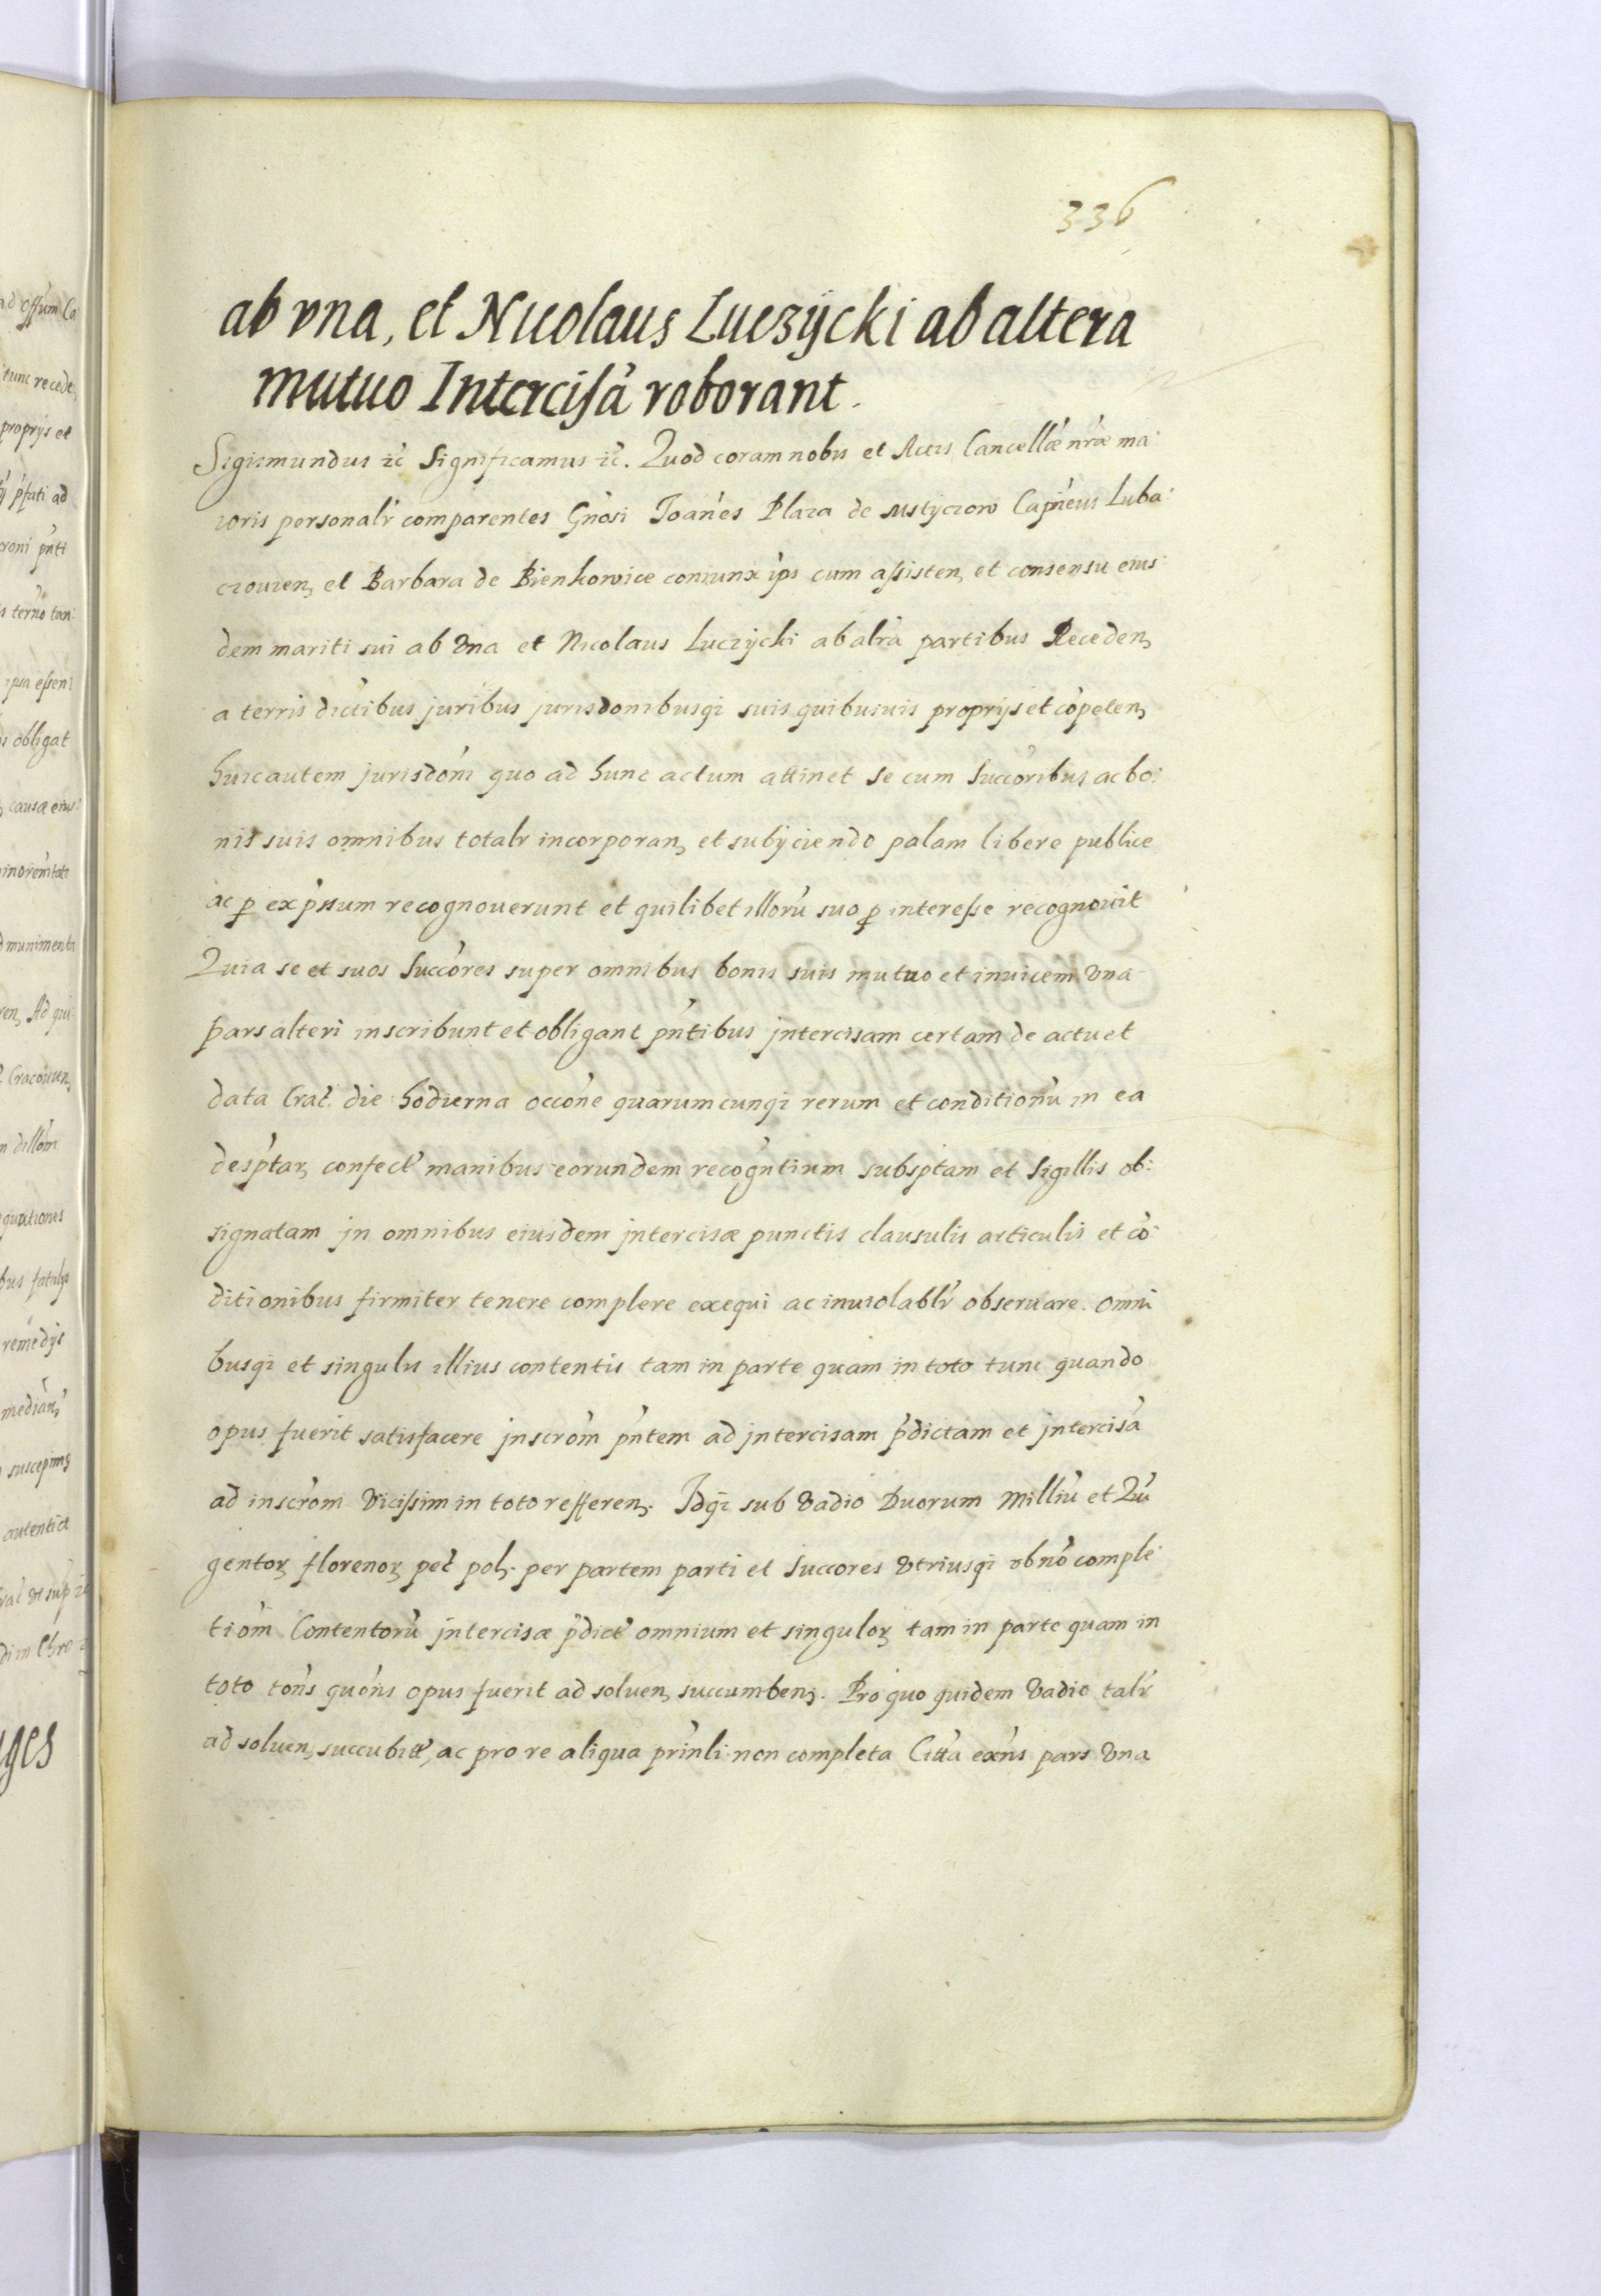 336
ab vna, et Nicolaus Luczÿcki ab altera
mutuo Intercisã roborant.
Sigismundus ꝛc̃ Significamus ꝛc̃. Quod coram nobis et Actis Cancellæ nr̃æ ma:
ioris personalr̃ comparentes Gn̉osi Joan̉es Plaza de Mstyczow Cap̃neus Luba:
czouien, et Barbara de Bienkowice coniunx ip̃s cum assisten, et consensu eius:
dem mariti sui ab vna et Nicolaus Luczÿcki ab alr̃a partibus Receden,
a terris dictibus juribus jurisdonibusqȝ suis quibusuis proprijs et cõpeten,
huic autem jurisdom̃ quo ad hunc actum attinet se cum Succõribus ac bo:
nis suis omnibus totalr̃ incorporan, et subijciendo palam libere publice
ac ꝑ exp̃ssum recognouerunt et quilibet illorũ suo ꝑ interesse recognouit
Quia se et suos Succõres super omnibus bonis suis mutuo et inuicem vna
pars alteri inscribunt et obligant pñtibus jntercisam certam de actu et
data Crac̃. die hodierna occõne quarumcunqȝ rerum et conditionũ in ea
desp̃taꝝ confect̃ manibus eorundem recogñtium subsp̃tam et Sigillis ob:
signatam jn omnibus eiusdem jntercisæ punctis clausulis articulis et cõ:
ditionibus firmiter tenere complere exequi ac inuiolablr̃ obseruare. omni
busqȝ et singulis illius contentis tam in parte quam in toto tunc quando
opus fuerit satisfacere jnscrõm pñtem ad jntercisam p̃dictam et jntercisã
ad inscrõm vicissim in toto refferen,. Jdqȝ sub vadio Duorum Milliũ et Quĩ
gentoꝝ florenoꝝ pec̃ pol,. per partem parti et Succores vtriusqȝ ob nõ comple:
tiõm Contentorũ jntercisæ p̃dict̃ omnium et singuloꝝ tam in parte quam in
toto tõns quõns opus fuerit ad soluen, succumben,. Pro quo quidem vadio talr̃
ad soluen, succubitt̃, ac pro re aliqua prĩnli non completa Citt̃a exñs pars vna